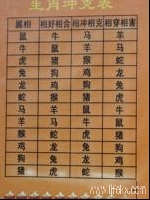 生肖冲克表
属相 相好相合 相冲相克 相穿相害
鼠 牛 马 羊
牛 鼠 羊 马
虎 猪 猴 蛇
兔 狗 鸡 龙
龙 鸡 狗 兔
蛇 猴 猪 虎
马 羊 鼠 牛
羊 马 牛 鼠
猴 蛇 虎 猪
鸡 龙 兔 狗
狗 兔 龙 鸡
猪 虎 蛇 猴